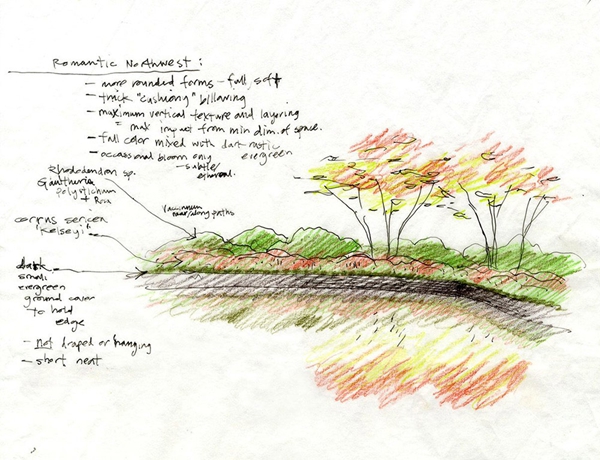 Romantic Northwest:
- more rounded forms - full, soft
- thick "cushiony" billowing
- maximum vertical texture and layering
= max impact from min dim. of space.
- fall color mixed with dark rustic
evergreen
- occasional bloom only
- subtle/
ephemeral.
Rhododendron sp.
Gaultheria
Polystichum
+ Rosa
Vaccinium
near/along paths
cornus sericea
'Kelseyi'
dark
small
evergreen
ground cover
to hold
edge
- not draped or hanging
- short neat